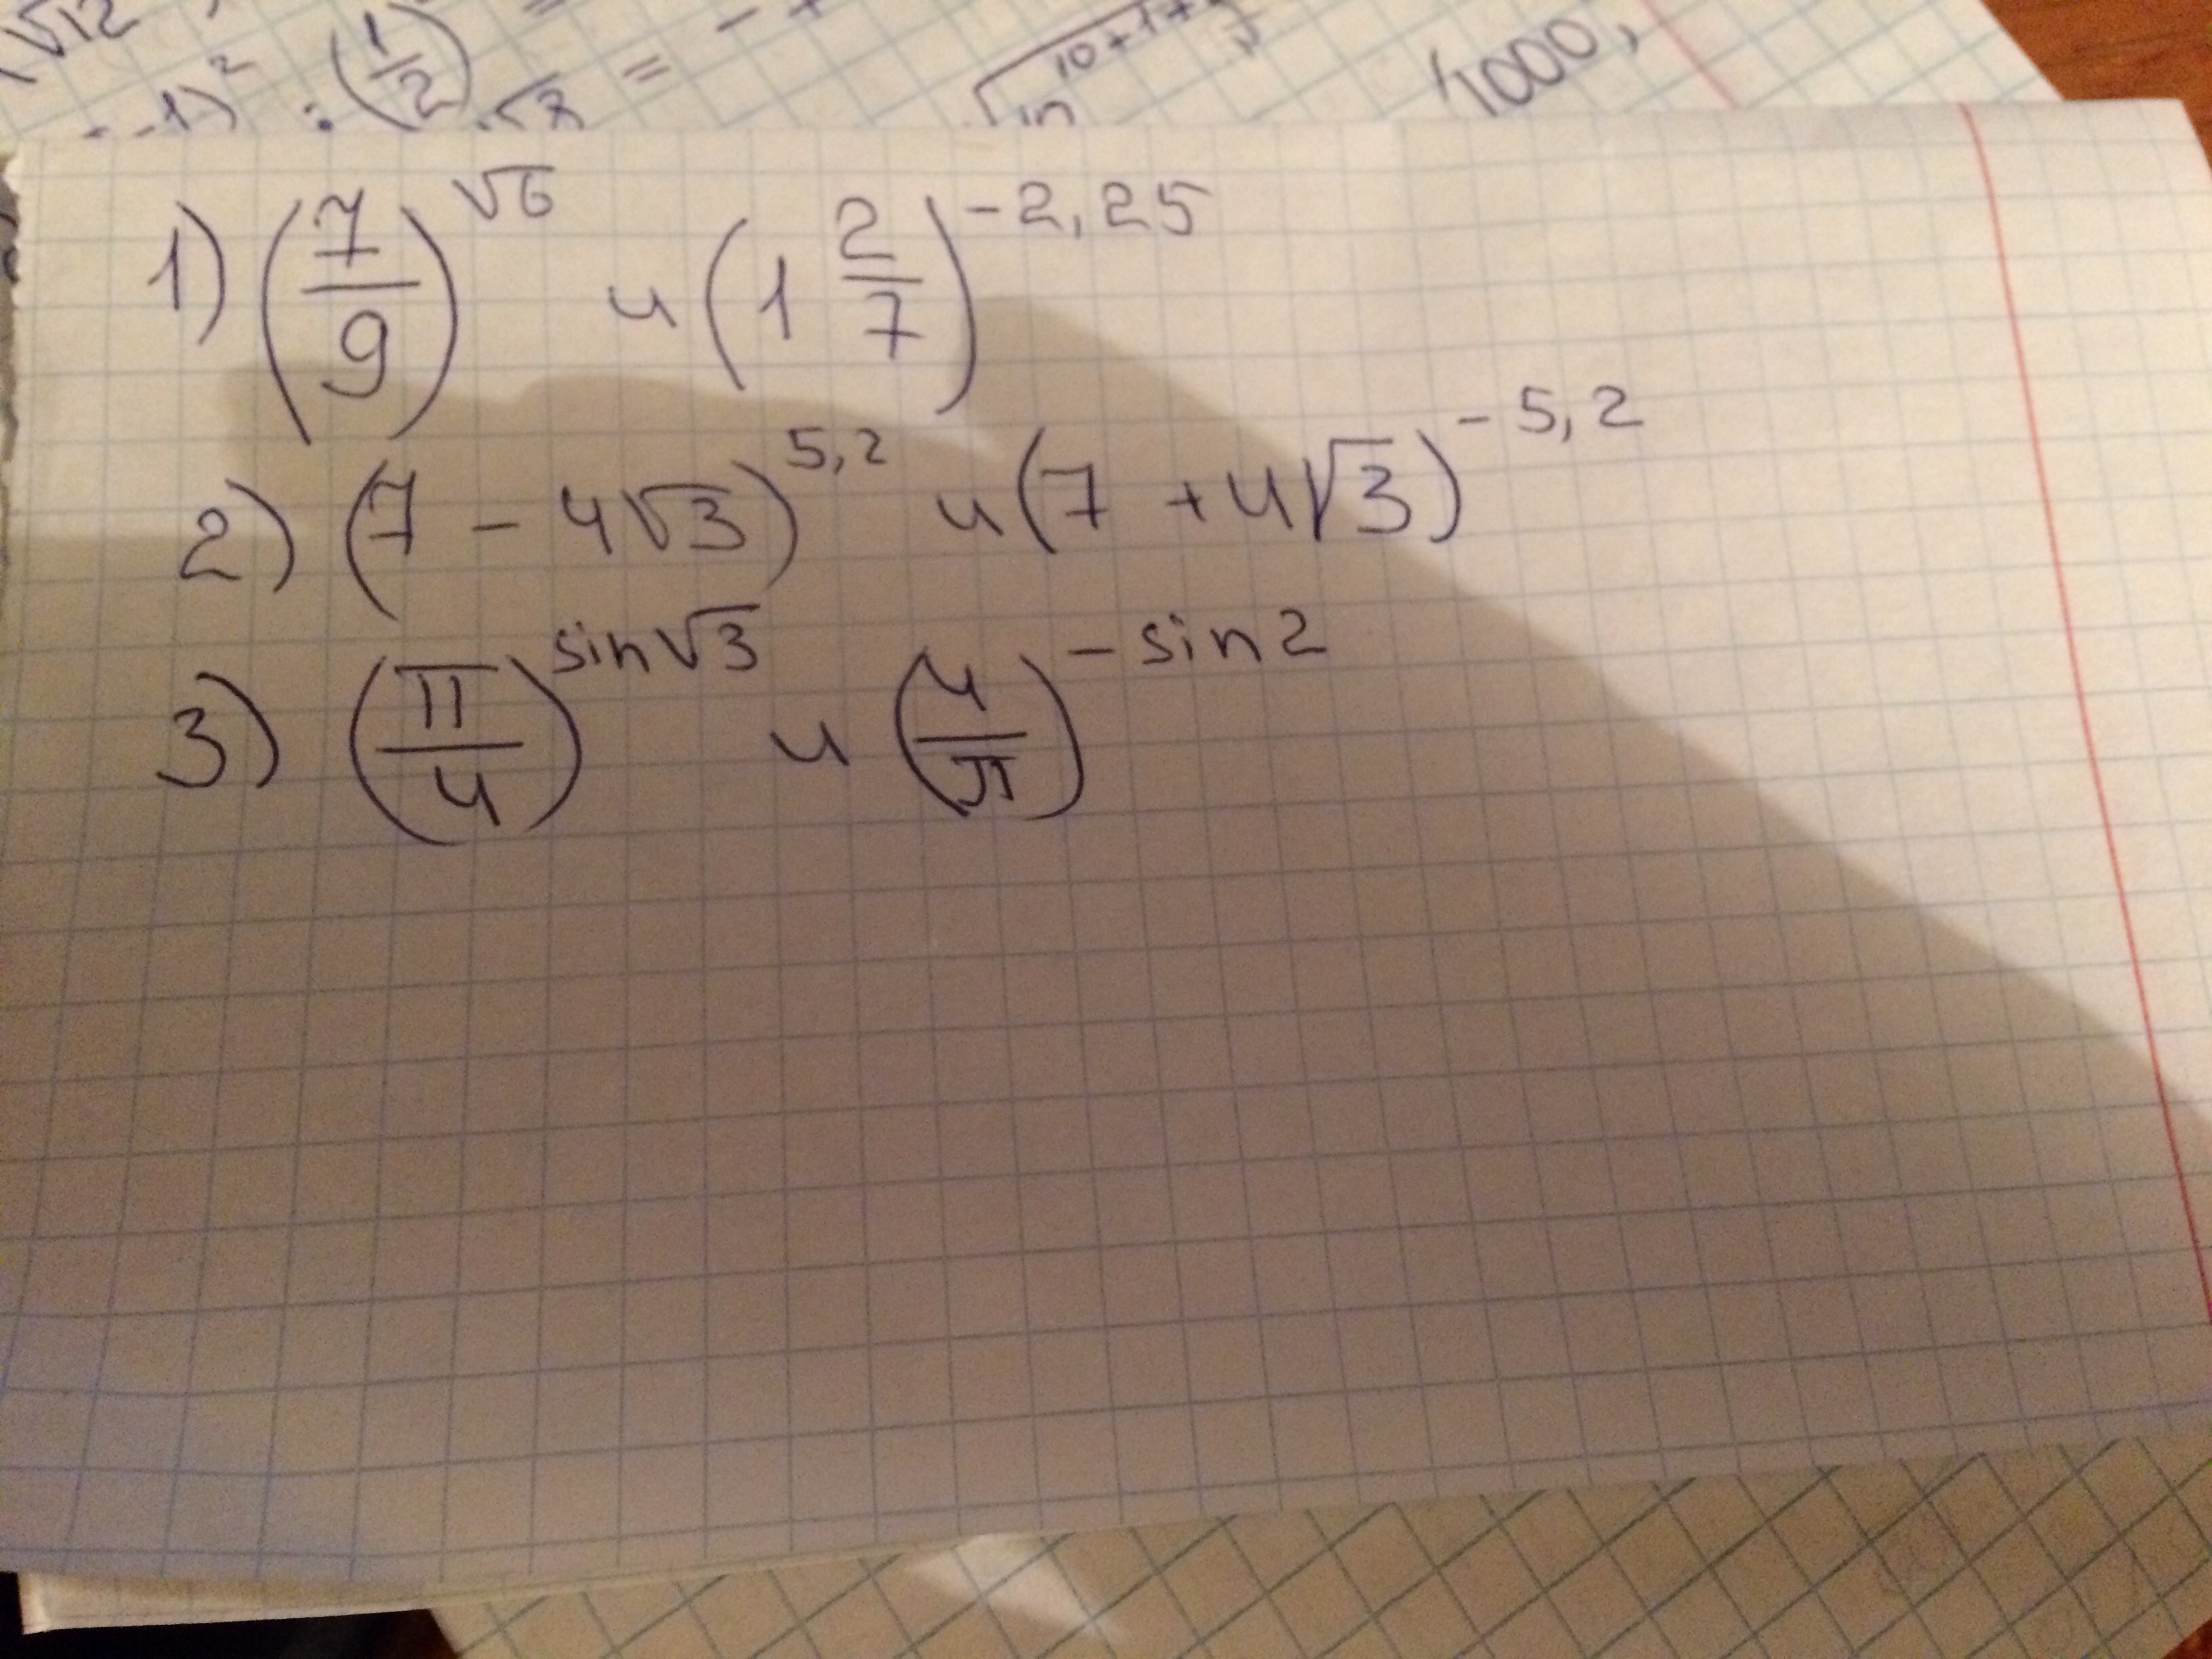 √12
-1)² : (1/2) . √7 = - +
√10 10+1+
1000,
1) (7/9)^√6 и (1 2/7)^-2,25
2) (7 - 4√3)^5,2 и (7 + 4√3)^-5,2
3) (π/4)^sin√3 и (4/π)^-sin2